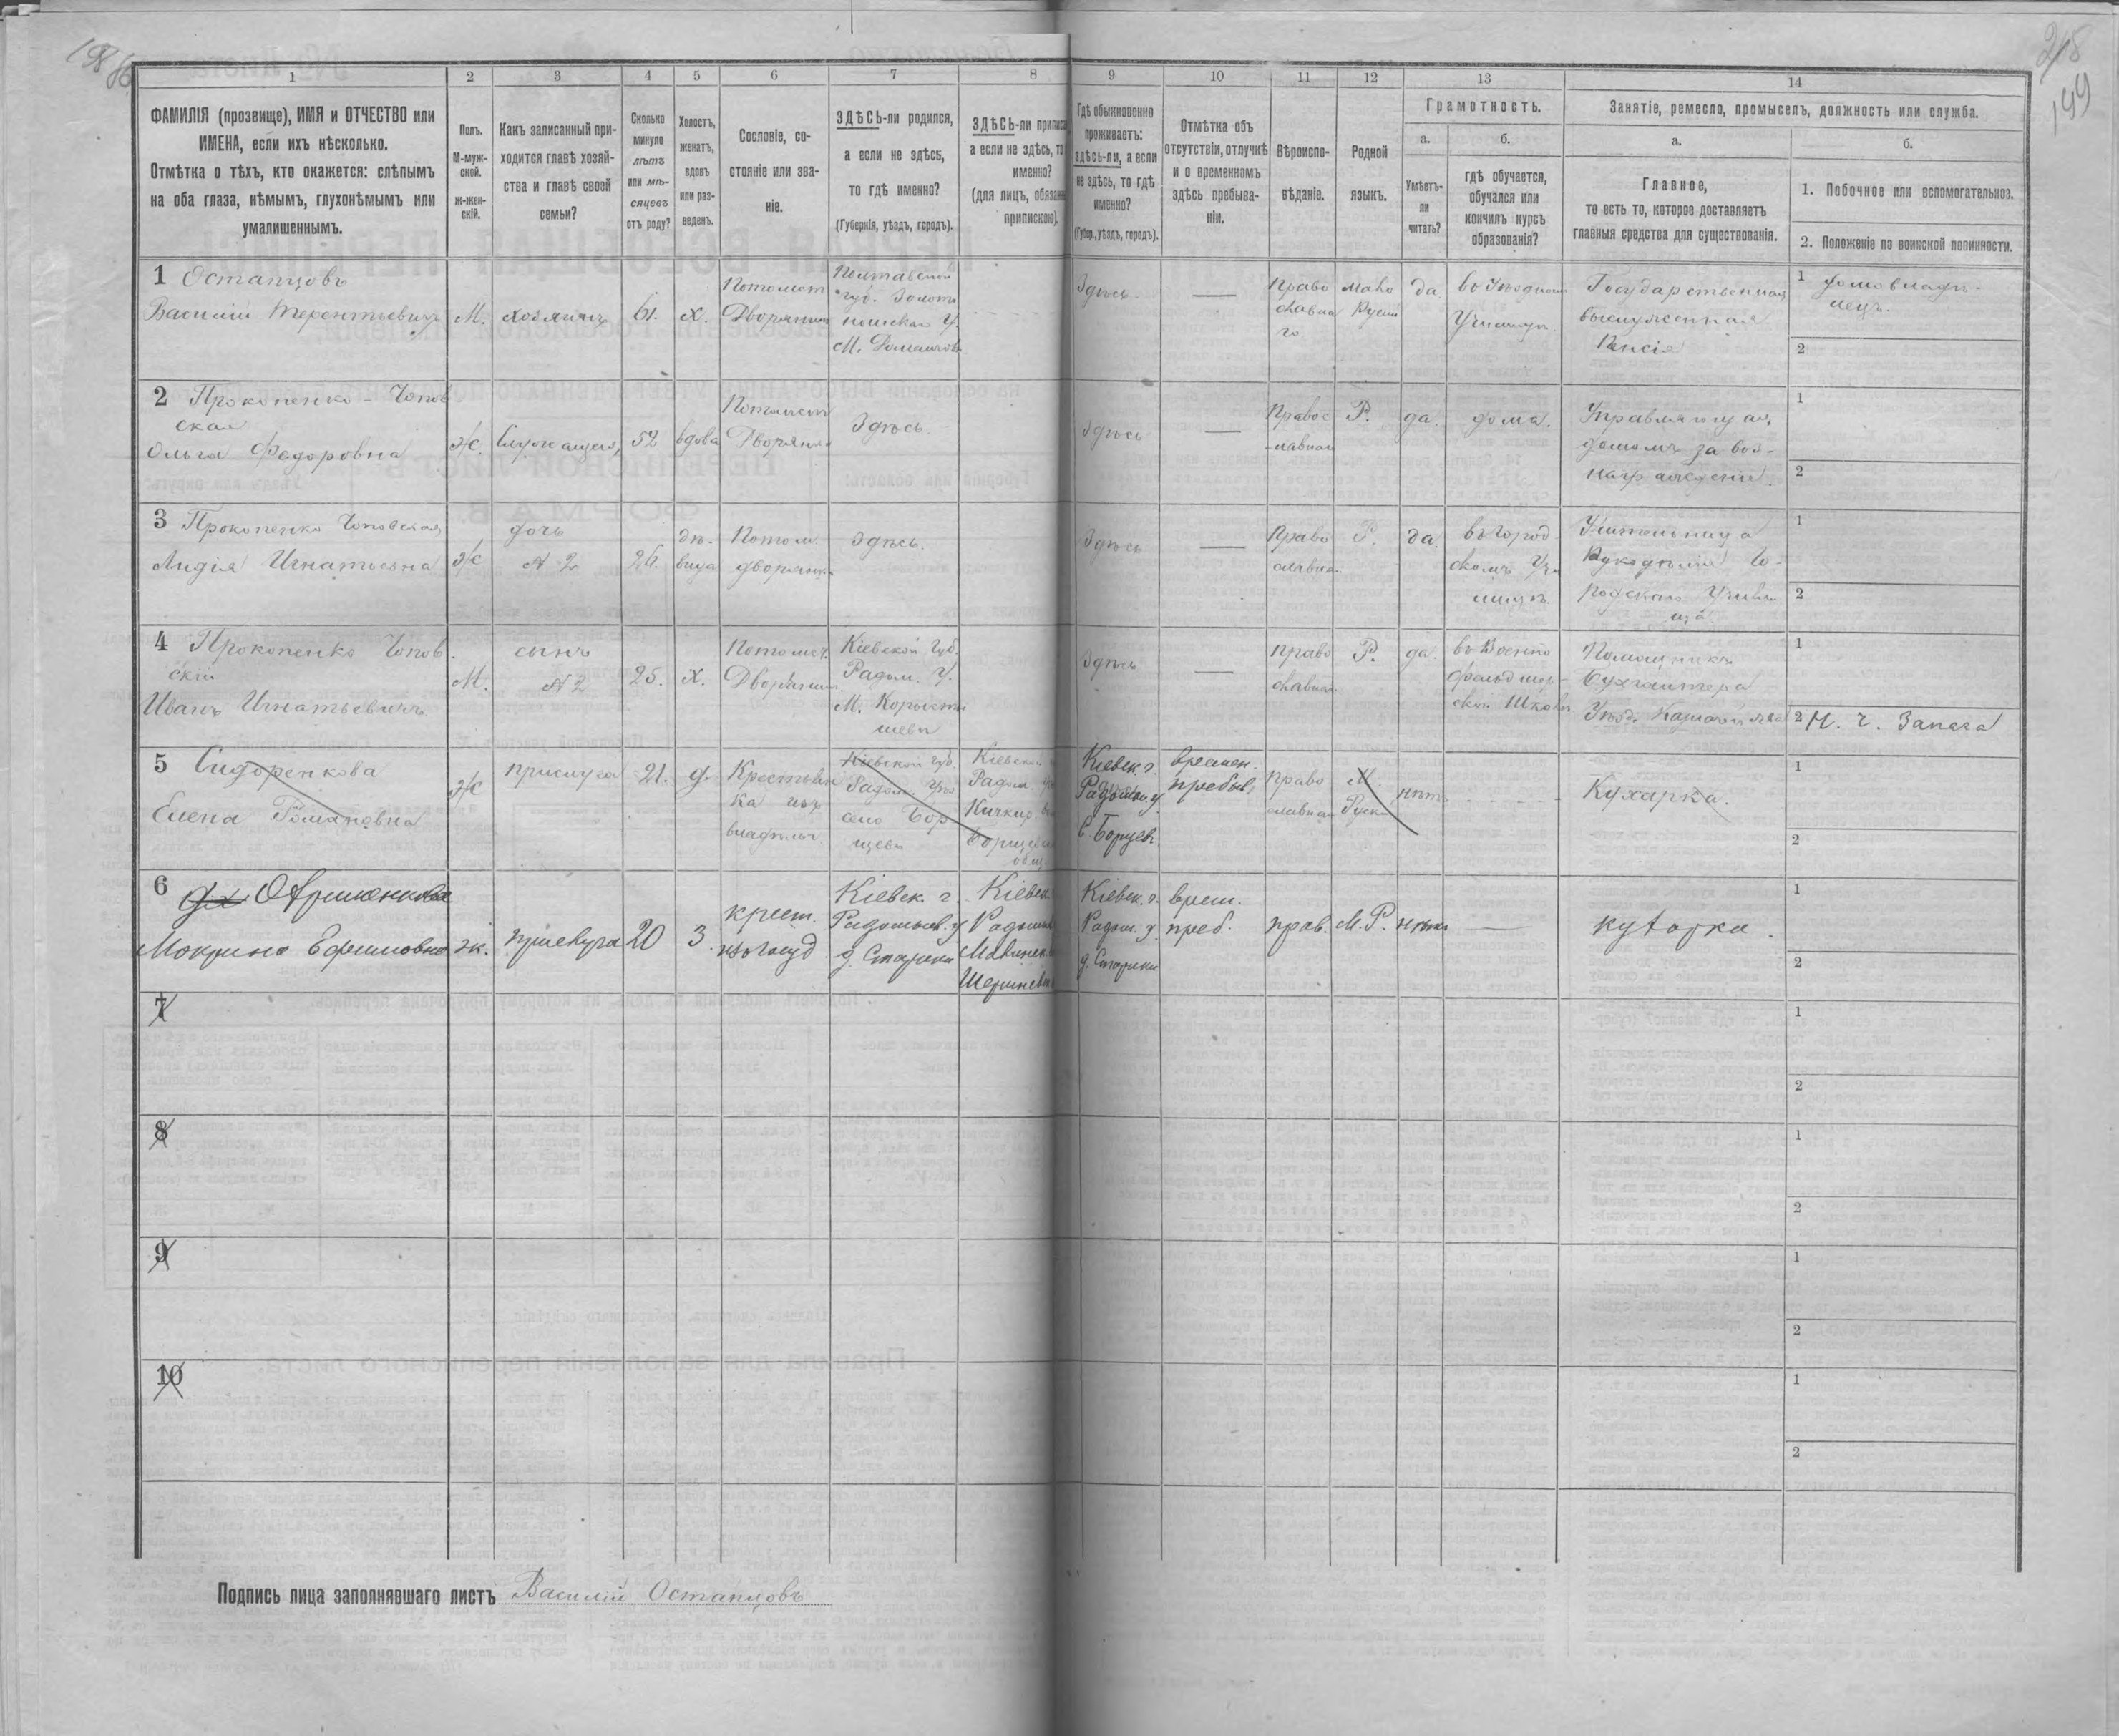 1
2
3
4
5
6
7
8
9
10
11
12
13
14
ФАМИЛІЯ (прозвище), ИМЯ и ОТЧЕСТВО или
ИМЕНА, если ихъ нѣсколько.
Отмѣтка о тѣхъ, кто окажется: слѣпымъ
на оба глаза, нѣмымъ, глухонѣмымъ или
умалишеннымъ.
Полъ.
М-муж-
ской.
ж-жен-
скій.
Какъ записанный при-
ходится главѣ хозяй-
ства и главѣ своей
семьи?
Сколько
минуло
лѣтъ
или мѣ-
сяцевъ
отъ роду?
Холостъ,
женатъ,
вдовъ
или раз-
веденъ.
Сословіе, со-
стояніе или зва-
ніе.
ЗДѢСЬ-ли родился,
а если не здѣсь,
то гдѣ именно?
(Губернія, уѣздъ, городъ).
ЗДѢСЬ-ли
а если не здѣсь,
именно?
(для лицъ,
припискою).
Гдѣ обыкновенно
проживаетъ:
здѣсь-ли, а если
не здѣсь, то гдѣ
именно?
(Губер., уѣздъ, городъ).
Отмѣтка объ
отсутствіи, отлучкѣ
и о временномъ
здѣсь пребыва-
ніи.
Вѣроиспо-
вѣданіе.
Родной
языкъ.
Грамотность.
а.
Умѣетъ-
ли
читать?
б.
гдѣ обучается,
обучался или
кончилъ курсъ
образованія?
Занятіе, ремесло, промыселъ, должность или служба.
а.
Главное,
то есть то, которое доставляетъ
главныя средства для существованія.
б.
1. Побочное или вспомогательное.
2. Положеніе по воинской повинности.
1 Остапцовъ
Василій Терентьевичъ
М.
хозяинъ
61.
х.
Дворянинъ
Полтавской
губ.
Здѣсь
Право
славна
го
Мало
да
Государственная
выслуженная
Пенсія
1 домовладѣ-
лецъ.
2
2 Прокопенко - Чопов
ская
Ольга Федоровна
ж
52
вдова
Дворянка
Здѣсь.
Здѣсь
Правос
-лавная
Р.
да.
дома.
Управляющая
домомъ за воз-
награжденіе.
1
2
3 Прокопенко Чоповская
Лидія Игнатьевна
ж
дочь
№ 2
26.
дѣ-
вица
Потом.
дворянка
Здѣсь.
Здѣсь
Право
славная
Р.
да.
въ Город
скомъ Учи
лищѣ
Учительница
Рукодѣлія Го-
родского Учили
ща
1
2
4 Прокопенко Чопов
скій
Иванъ Игнатьевичъ
М.
сынъ
№ 2
25.
х.
Потомст.
Дворянинъ
Кіевской Губ.
Радом. У.
М. Коросты
шевъ
Здѣсь
Право
славная
Р.
да.
въ Военно
фельдшер-
ской Школѣ
Помощникъ
Бухгалтера
Уѣзд. Казначейства
1
2 Н. ч. Запаса
5 Сидоренкова
Елена Романовна
ж
прислуга
21.
д.
Крестьян
ка изъ
владѣльч
Кіевской губ.
Радом. Уѣз
село Бор
щевъ
Кіевской
Радом.
Кіевск. г.
Радомы. у.
с. Борщевъ.
времен.
пребыв.
Право
славная
М.
Руск
нѣтъ
Кухарка.
1
2
6
Мокрина Ефимовна
ж.
прислуга
20
З.
крест.
изъ госуд.
Кіевск. г.
Радомысл. у
д. Старики
Кіевск.
Кіевск. г.
Радом. у.
д. Старики
врем.
преб.
прав.
М.Р.
нѣтъ
кухарка.
1
2
7
1
2
8
1
2
9
1
2
10
1
2
Подпись лица заполнявшаго листъ Василій Остапцовъ